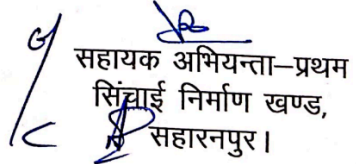 सहायक अभियन्ता–प्रथम
सिंचाई निर्माण खण्ड,
सहारनपुर।